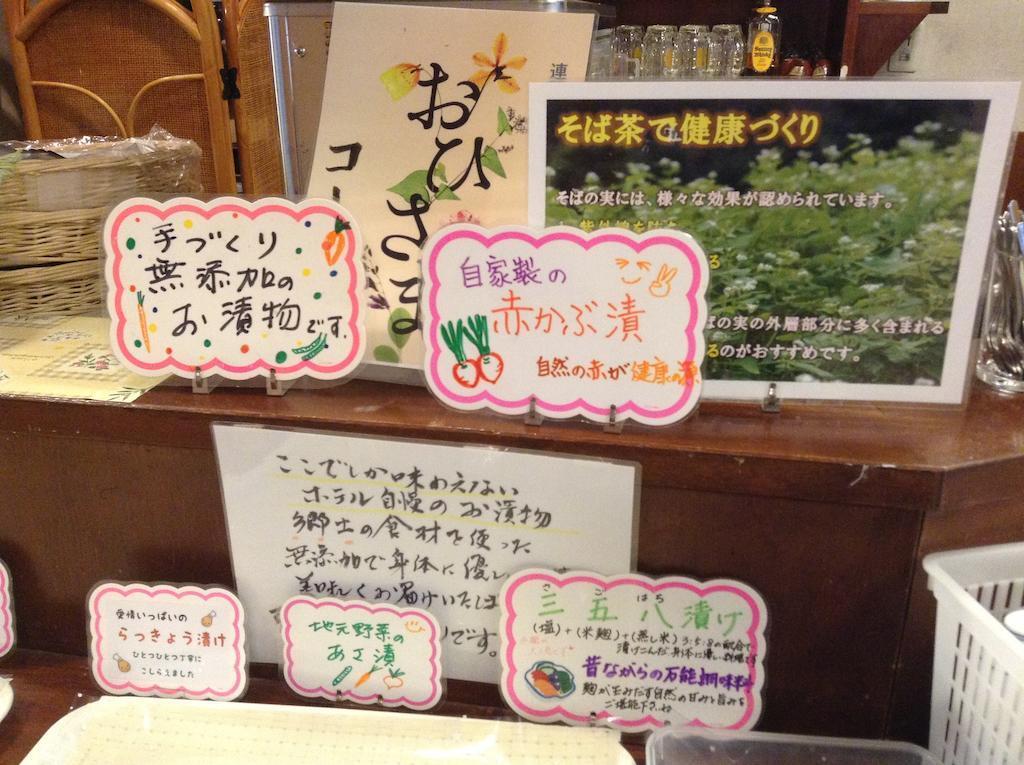 連
おひさま
コー
そば茶で健康づくり
そばの実には、様々な効果が認められています。
る
ばの実の外層部分に多く含まれる
るのがおすすめです。
手づくり
無添加の
お漬物です。
自家製の
赤かぶ漬
自然の赤が健康の源
ここでしか味わえない
ホテル自慢のお漬物
郷土の食材を使った
無添加で身体に優し
美味しくお届けいたしま
です。
愛情いっぱいの
らっきょう漬け
ひとつひとつ丁寧に
こしらえました
地元野菜の
あさ漬
さ ご はち
三五八漬け
(塩)+(米麹)+(蒸し米) 3:5:8の配合で
漬けこんだ身体に優しい
昔ながらの万能調味料
麹が生みだす自然の甘みと旨みを
ご堪能下さい